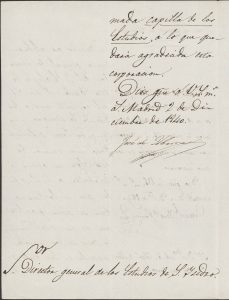 mada capilla de los
Estudios, a lo que que
daria agradecida esta
corporacion.
Dios gue a V.S. m.s
a.s Madrid 2 de Di
ciembre de 1840.
José de
Sor
S. Director general de los Estudios de S. Ysidro.